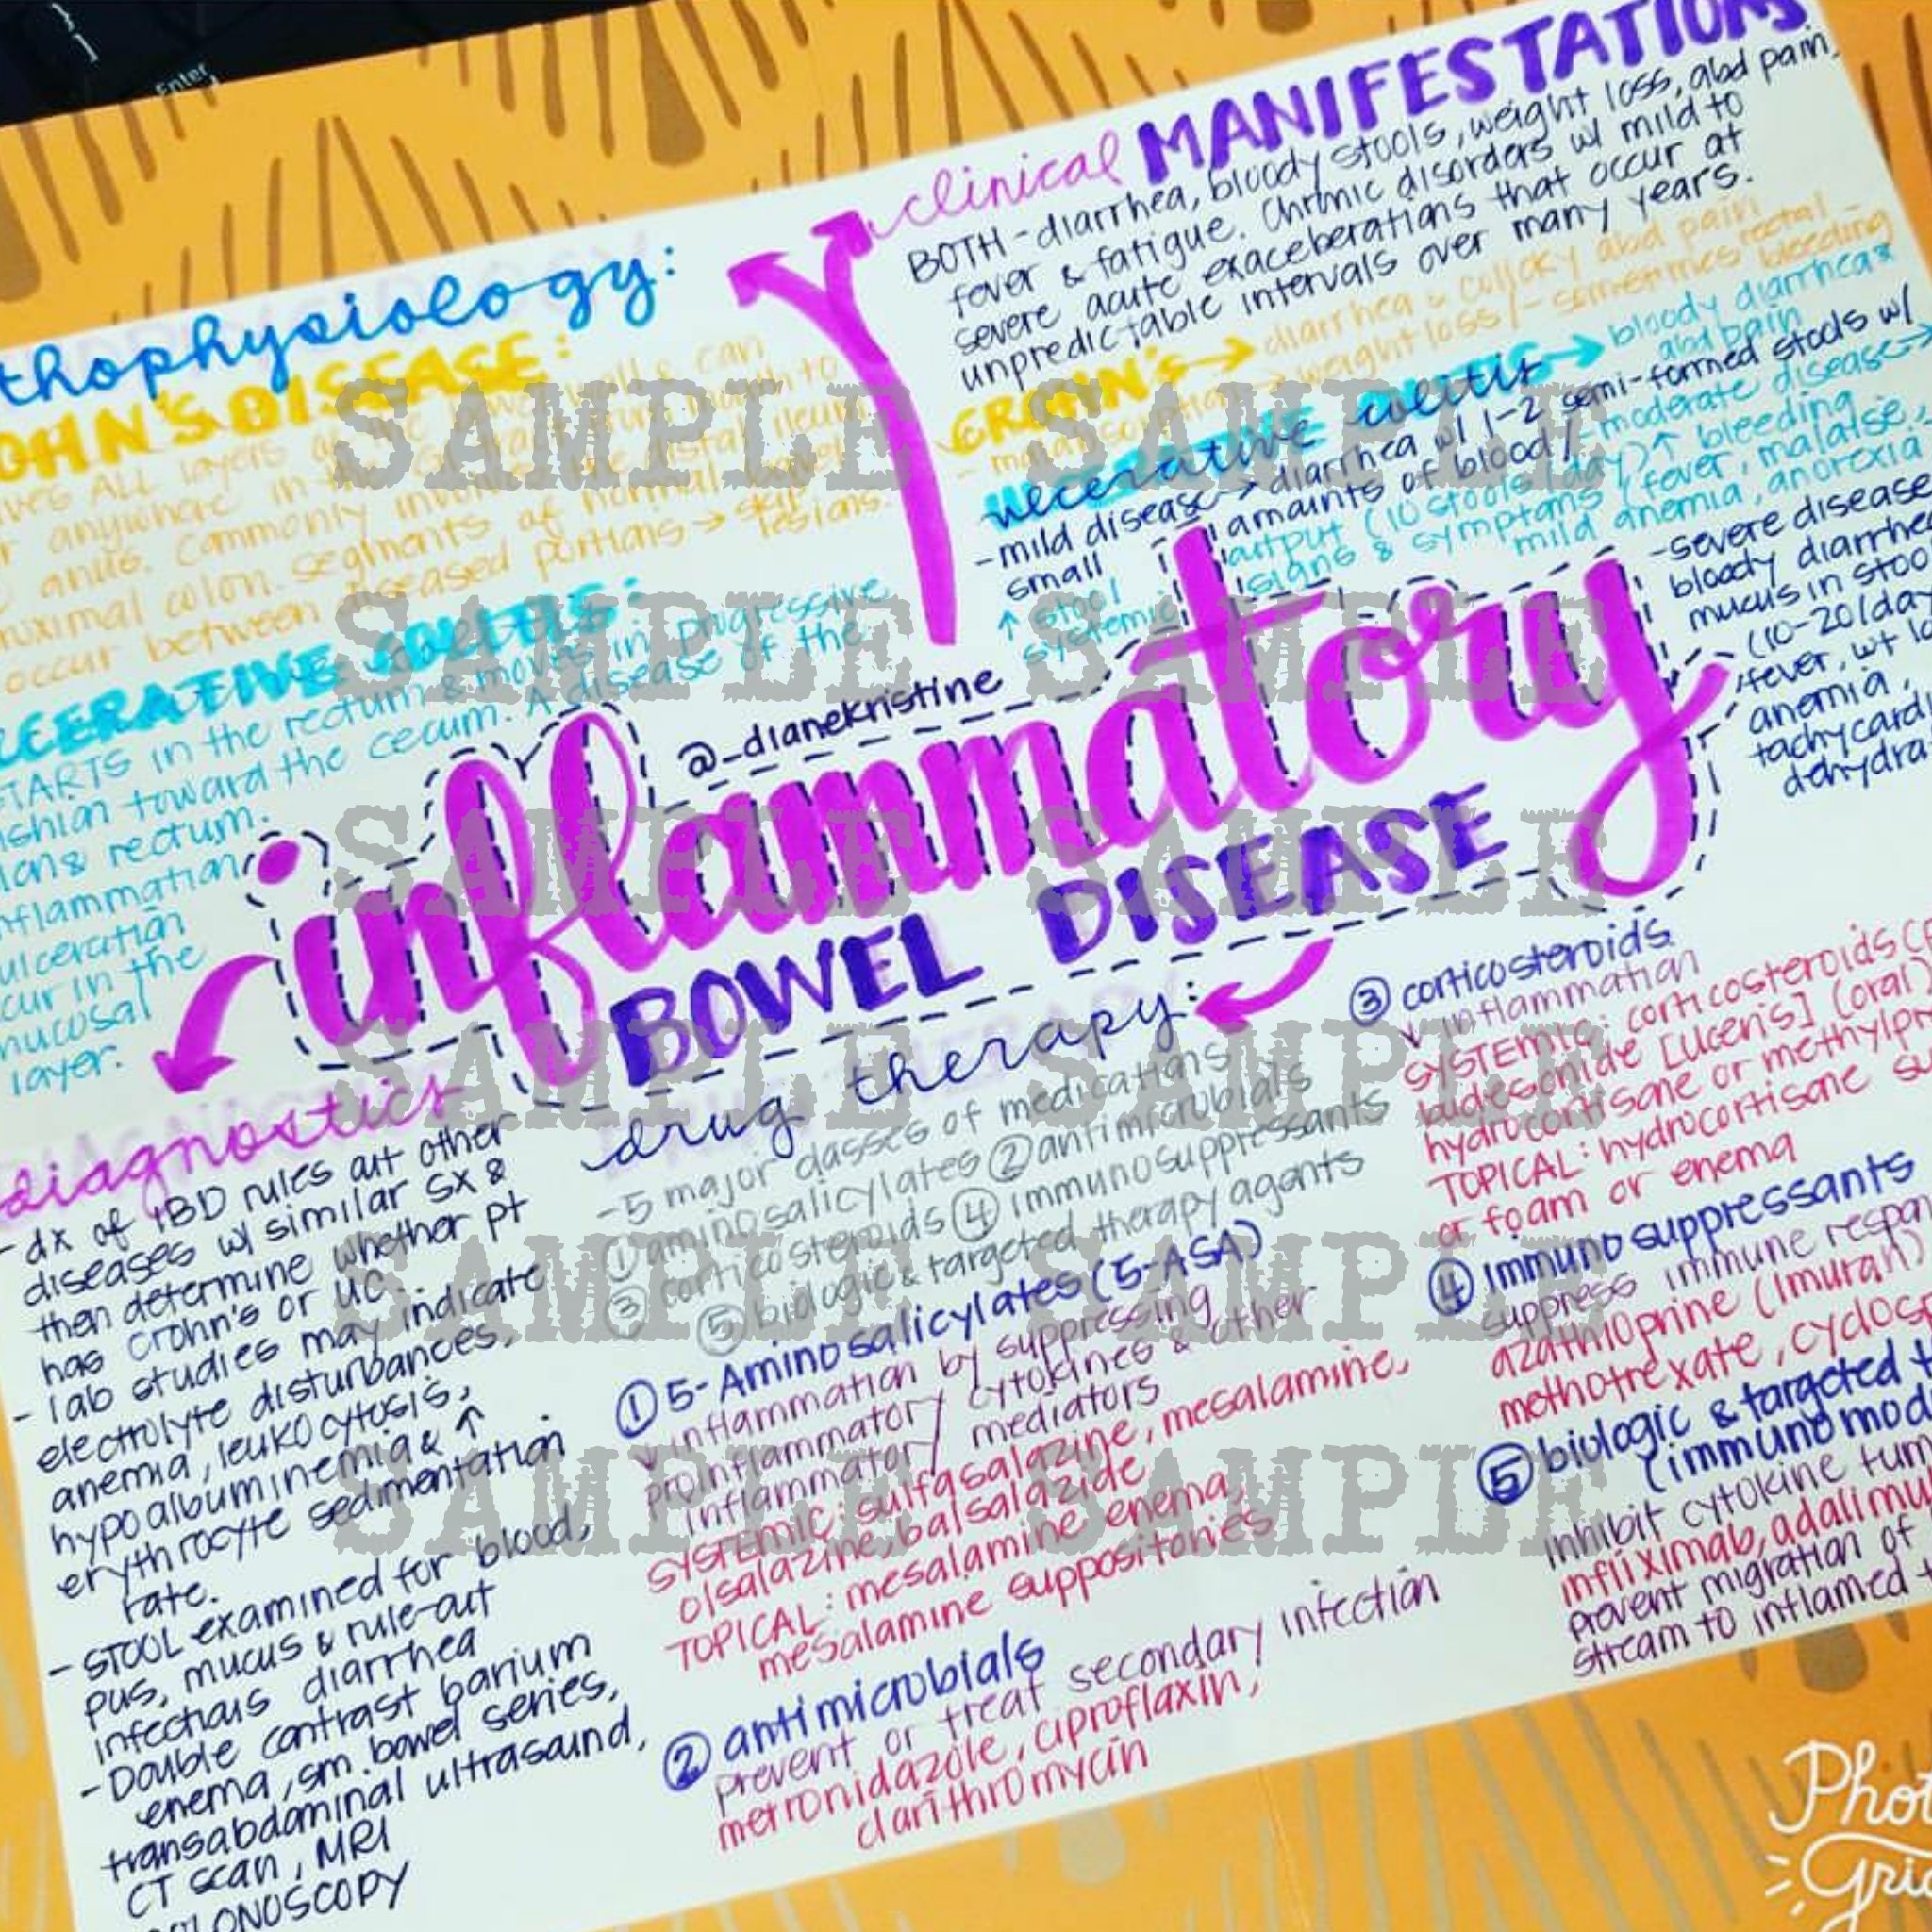 Enter
thophysiology:
OHN'S DISEASE:
ves ALL layers of the bowel wall & can
r anywhere in the GI tract from mouth to
anus. Commonly involves the distal ileum
roximal colon. Segments of normal bowel
occur between diseased portions → skip
lesions.
CERATIVE COLITIS:
STARTS in the rectum & moves in progressive
shion toward the cecum. A disease of the
lon & rectum.
nflammation
ulceration
cur in the
mucosal
layer.
clinical MANIFESTATIONS
BOTH - diarrhea, bloody stools, weight loss, abd pain,
fever & fatigue. Chronic disorders w/ mild to
severe acute exaceberations that occur at
unpredictable intervals over many years.
CROHN'S → diarrhea & colicky abd pain
- malabsorption → weight loss / - sometimes rectal
bleeding
ulcerative colitis → bloody diarrhea &
abd pain
- mild disease → diarrhea w/ 1-2 semi-formed stools w/
small amounts of blood / - moderate disease →
↑ stool output (10 stools/day) ↑ bleeding
systemic signs & symptoms (fever, malaise,
mild anemia, anorexia
- severe disease
bloody diarrhe
mucus in stoo
(10-20/da
fever, wt lo
anemia,
tachycard
dehydra
@_dianekristine
inflammatory
BOWEL DISEASE
diagnostics
- dx of IBD rules out other
diseases w/ similar sx &
then determine whether pt
has Crohn's or UC
- lab studies may indicate
electrolyte disturbances,
anemia, leukocytosis,
hypoalbuminemia & ↑
erythrocyte sedimentation
rate.
- STOOL examined for blood,
pus, mucus & rule-out
infectious diarrhea
- Double contrast barium
enema, sm. bowel series,
transabdominal ultrasound,
CT scan, MRI
COLONOSCOPY
drug therapy:
- 5 major classes of medications
① aminosalicylates ② antimicrobials
③ corticosteroids ④ immunosuppressants
⑤ biologic & targeted therapy agents
① 5-Aminosalicylates (5-ASA)
↓ inflammation by suppressing
proinflammatory cytokines & other
inflammatory mediators
SYSTEMIC: sulfasalazine, mesalamine,
olsalazine, balsalazide
TOPICAL: mesalamine enema,
mesalamine suppositories
② antimicrobials
prevent or treat secondary infection
metronidazole, ciproflaxin,
clarithromycin
③ corticosteroids
↓ inflammation
SYSTEMIC: corticosteroids (p
budesonide [Uceris] (oral)
hydrocortisone or methylpr
TOPICAL: hydrocortisone su
or foam or enema
④ immunosuppressants
suppress immune respon
azathioprine (Imuran)
methotrexate, cyclos
⑤ biologic & targeted t
(immunomod
inhibit cytokine tum
infliximab, adalimu
prevent migration of
stream to inflamed t
SAMPLE SAMPLE
SAMPLE SAMPLE
SAMPLE SAMPLE
SAMPLE SAMPLE
SAMPLE SAMPLE
SAMPLE SAMPLE
Phot
Grid